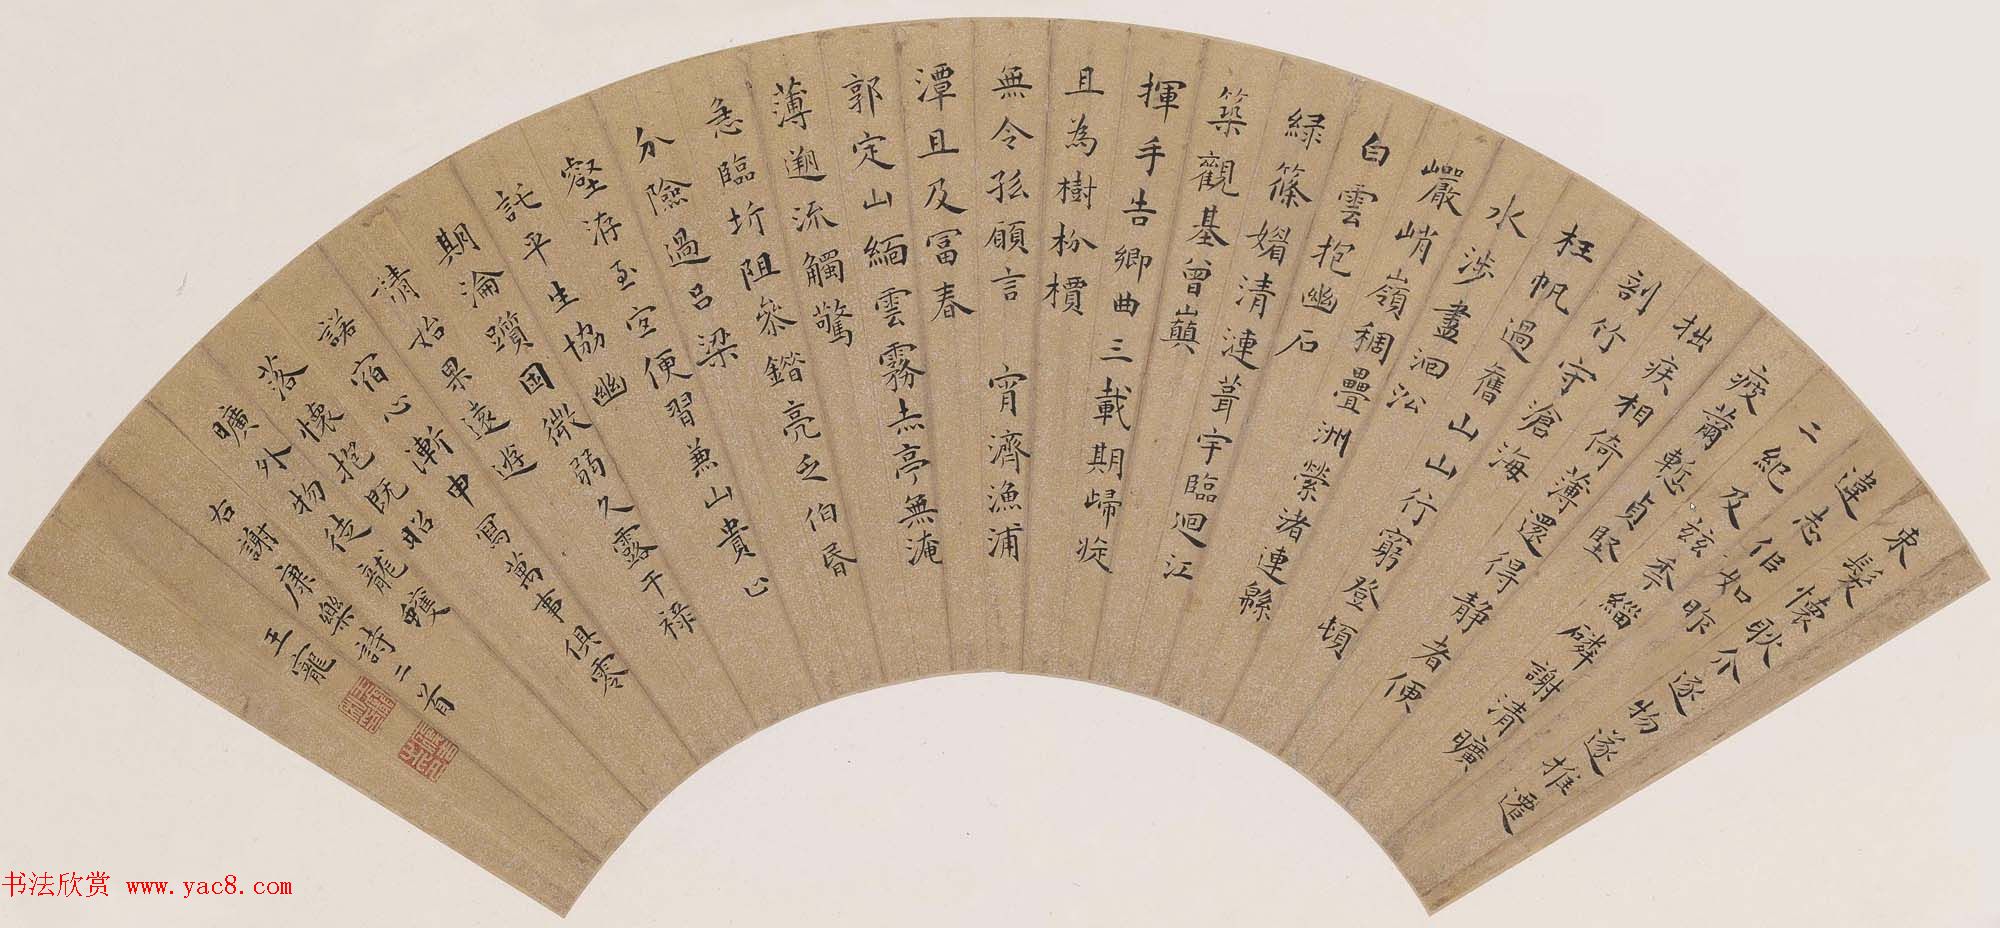 束髮懷耿介逐物遂推遷
違志佀如昨
二紀及茲秊緇磷謝清曠
疲薾慙貞堅
拙疾相倚薄還得靜者便
剖竹守滄海
枉帆過舊山山行窮登頓
水涉盡洄㳂
巖峭嶺稠疊洲縈渚連緜
白雲抱幽石
綠篠媚清漣葺宇臨迴江
築觀基曾巔
揮手告鄉曲三載期歸旋
且為樹枌檟
無令孤願言 宵濟漁浦
潭旦及富春
郭定山緬雲霧赤亭無淹
薄遡流觸驚
急臨圻阻參錯亮乏伯昏
分險過呂梁
壑洊至宜便習兼山貴止
託平生協幽
期淪躓困微弱久露干祿
請始果遠遊
諾宿心漸申寫萬事俱零
落懷抱既昭
曠外物徒龍蠖
右謝康樂詩二首
王寵
书法欣赏 www.yac8.com